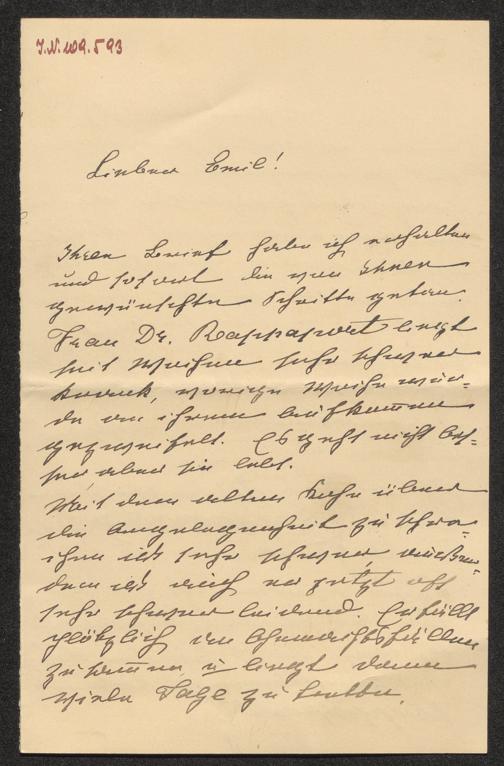 J.N. 109.593
Lieber Emil!
Ihren Brief habe ich erhalten
und sofort die von Ihnen
gewünschten Schritte getan.
Frau Dr. Rappaport liegt
seit Wochen sehr schwer
krank, vorige Woche wur-
de an ihrem Aufkommen
gezweifelt. Es geht nicht bes-
ser aber sie lebt.
Mit dem alten Kahn über
die Angelegenheit zu spre-
chen ist sehr schwer, außer-
dem ist auch er jetzt oft
sehr schwer leidend. Er fällt
plötzlich in Ohnmachtsfällen
zusammen u liegt dann
viele Tage zu Bette.